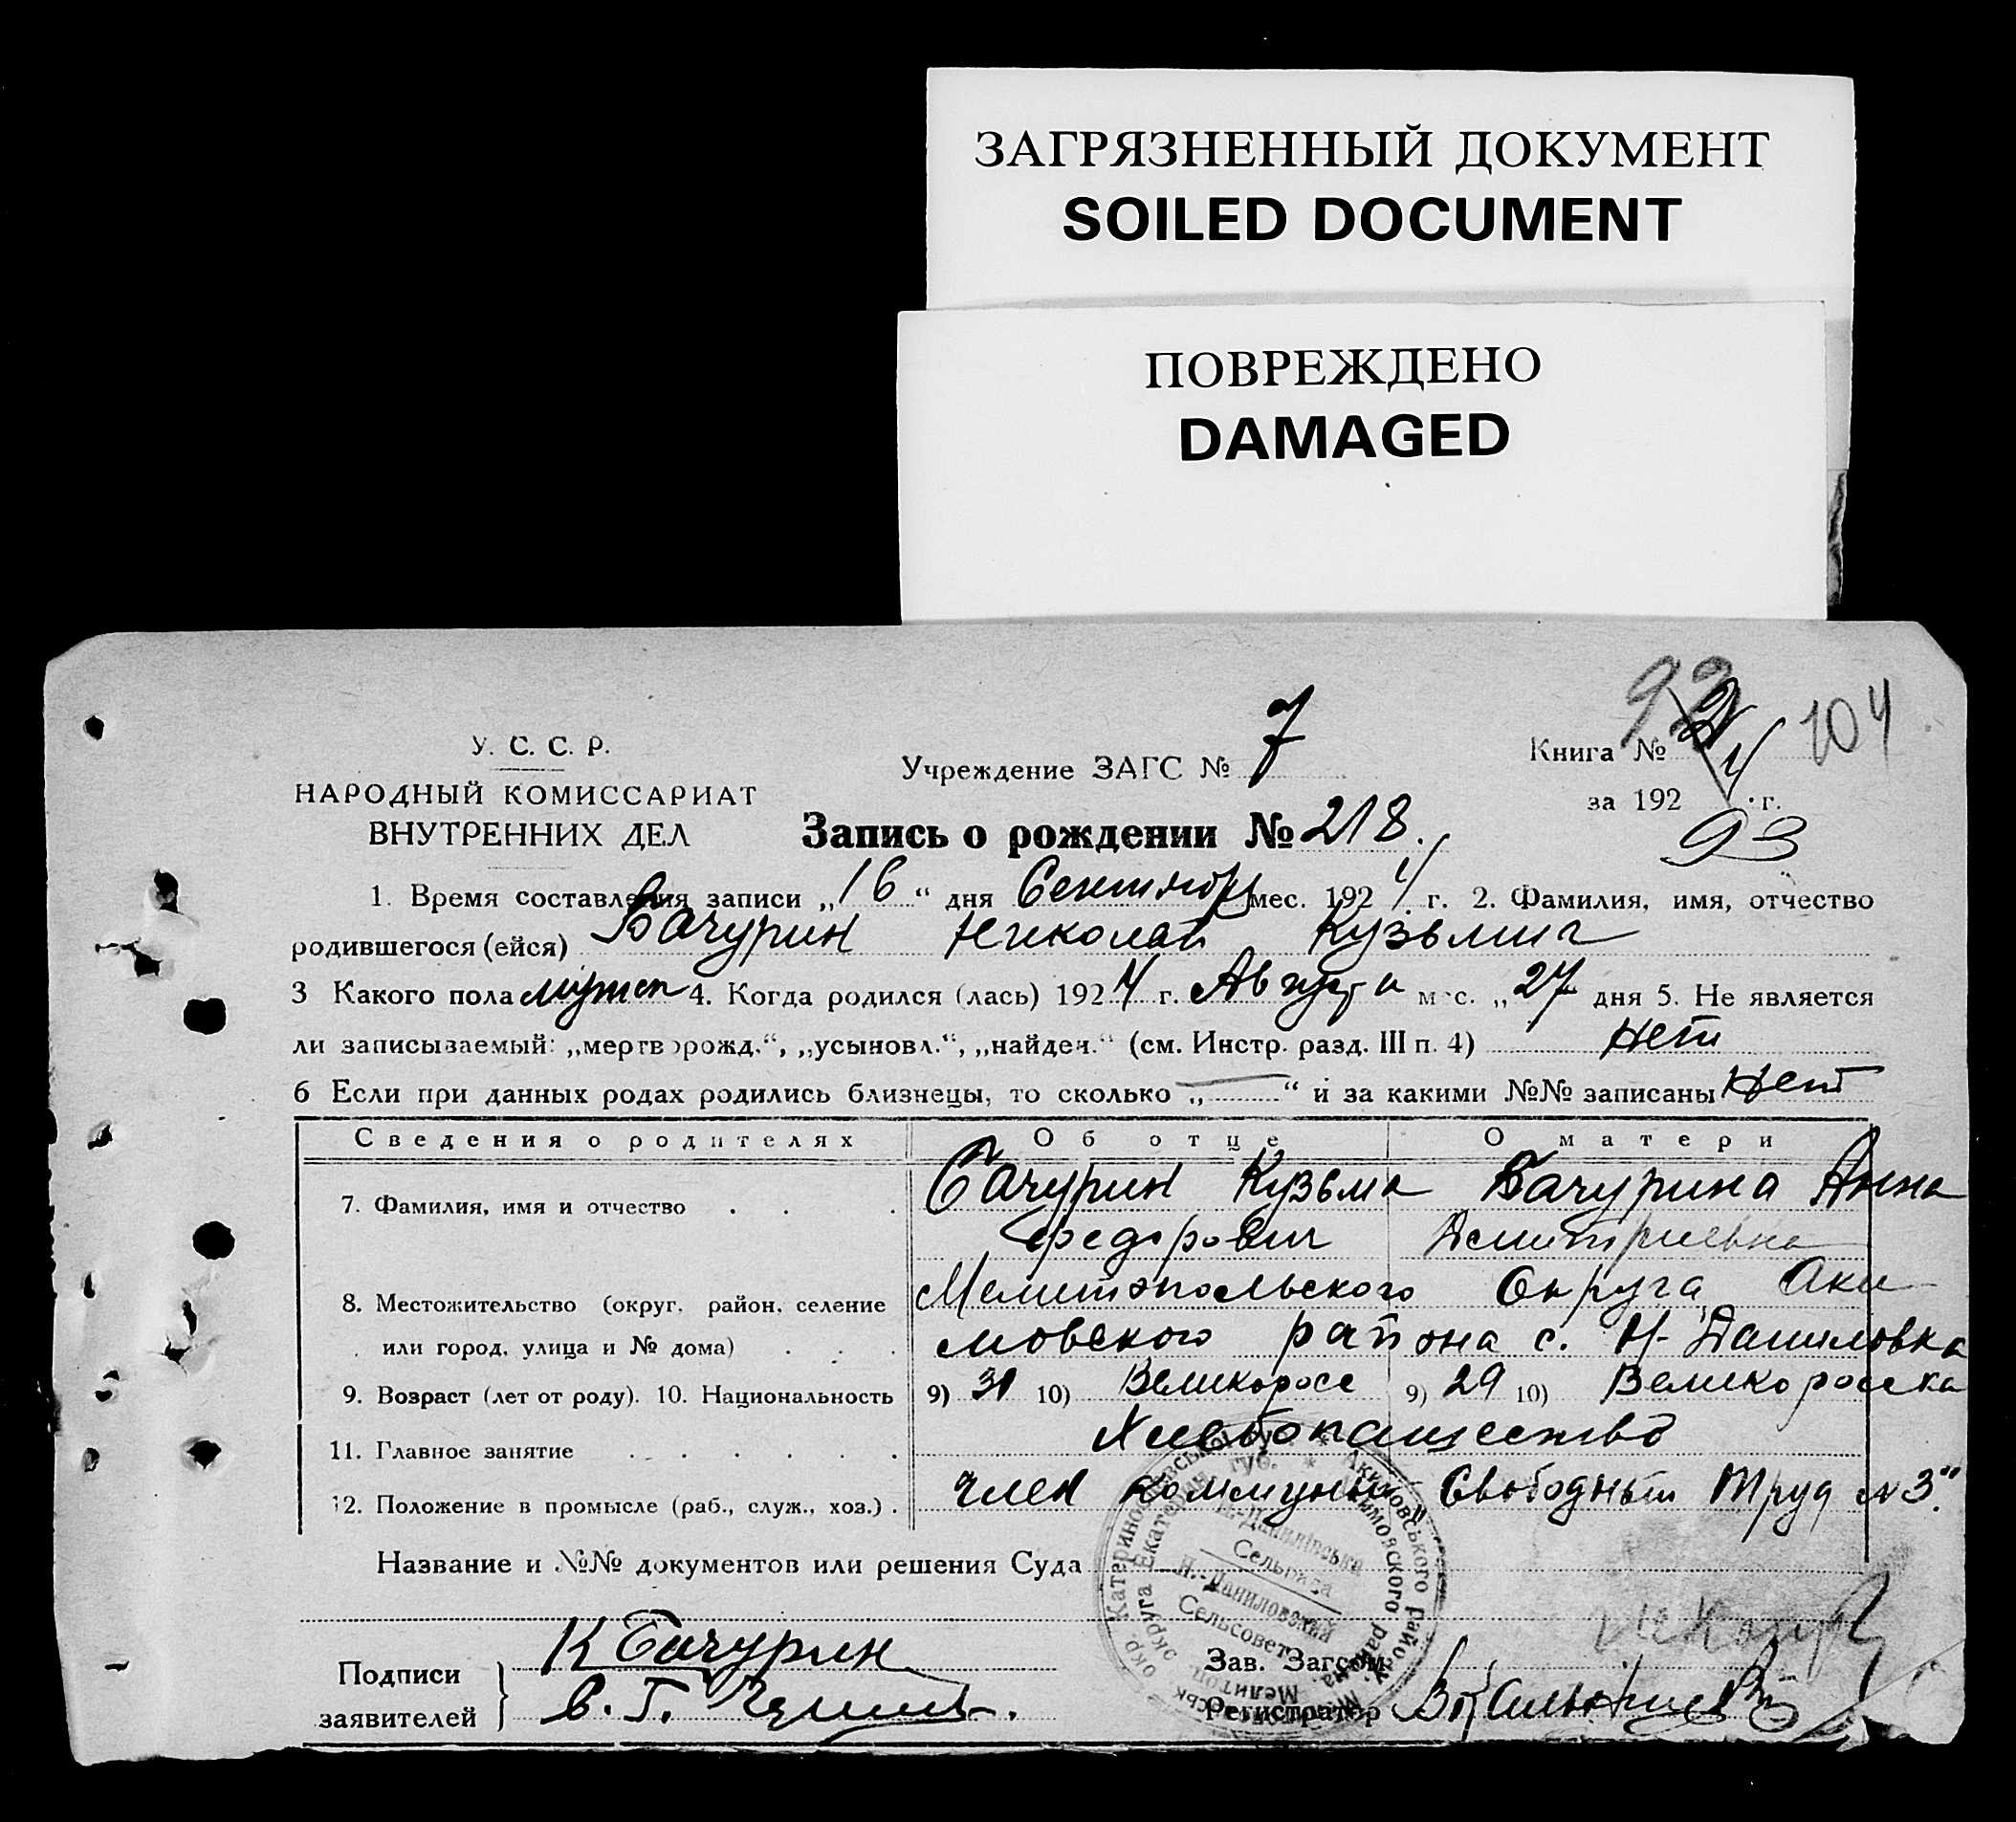 ЗАГРЯЗНЕННЫЙ ДОКУМЕНТ
SOILED DOCUMENT
ПОВРЕЖДЕНО
DAMAGED
93 104
У. С. С. Р.
НАРОДНЫЙ КОМИССАРИАТ
ВНУТРЕННИХ ДЕЛ
Учреждение ЗАГС № 7
Книга №
за 1924 г.
93
Запись о рождении № 218.
1. Время составления записи „16“ дня Сентябр мес. 1924 г. 2. Фамилия, имя, отчество
родившегося (ейся) Бачурин Николай Кузьмич
3 Какого пола мужск 4. Когда родился (лась) 1924 г. Августа мес. „27 дня 5. Не является
ли записываемый: „мертворожд.“, „усыновл.“, „найден.“ (см. Инстр. разд. III п. 4) Нет
6 Если при данных родах родились близнецы, то сколько „—“ и за какими №№ записаны Нет
Сведения о родителях Об отце О матери
7. Фамилия, имя и отчество Бачурин Кузьма Бачурина Анна
Федорович Дмитриевна
8. Местожительство (округ, район, селение Мелитопольского Округа Аки-
или город, улица и № дома) мовского района с. Н-Даниловка
9. Возраст (лет от роду). 10. Национальность 9) 31 10) Великоросс 9) 29 10) Великоросска
11. Главное занятие Хлебопашество
12. Положение в промысле (раб., служ., хоз.) Член коммуны „Свободный Труд №3“
Название и №№ документов или решения Суда
Н.-Даниловский
Сельсовет
Подписи
заявителей
К Бачурин
Зав. Загсом
Регистратор